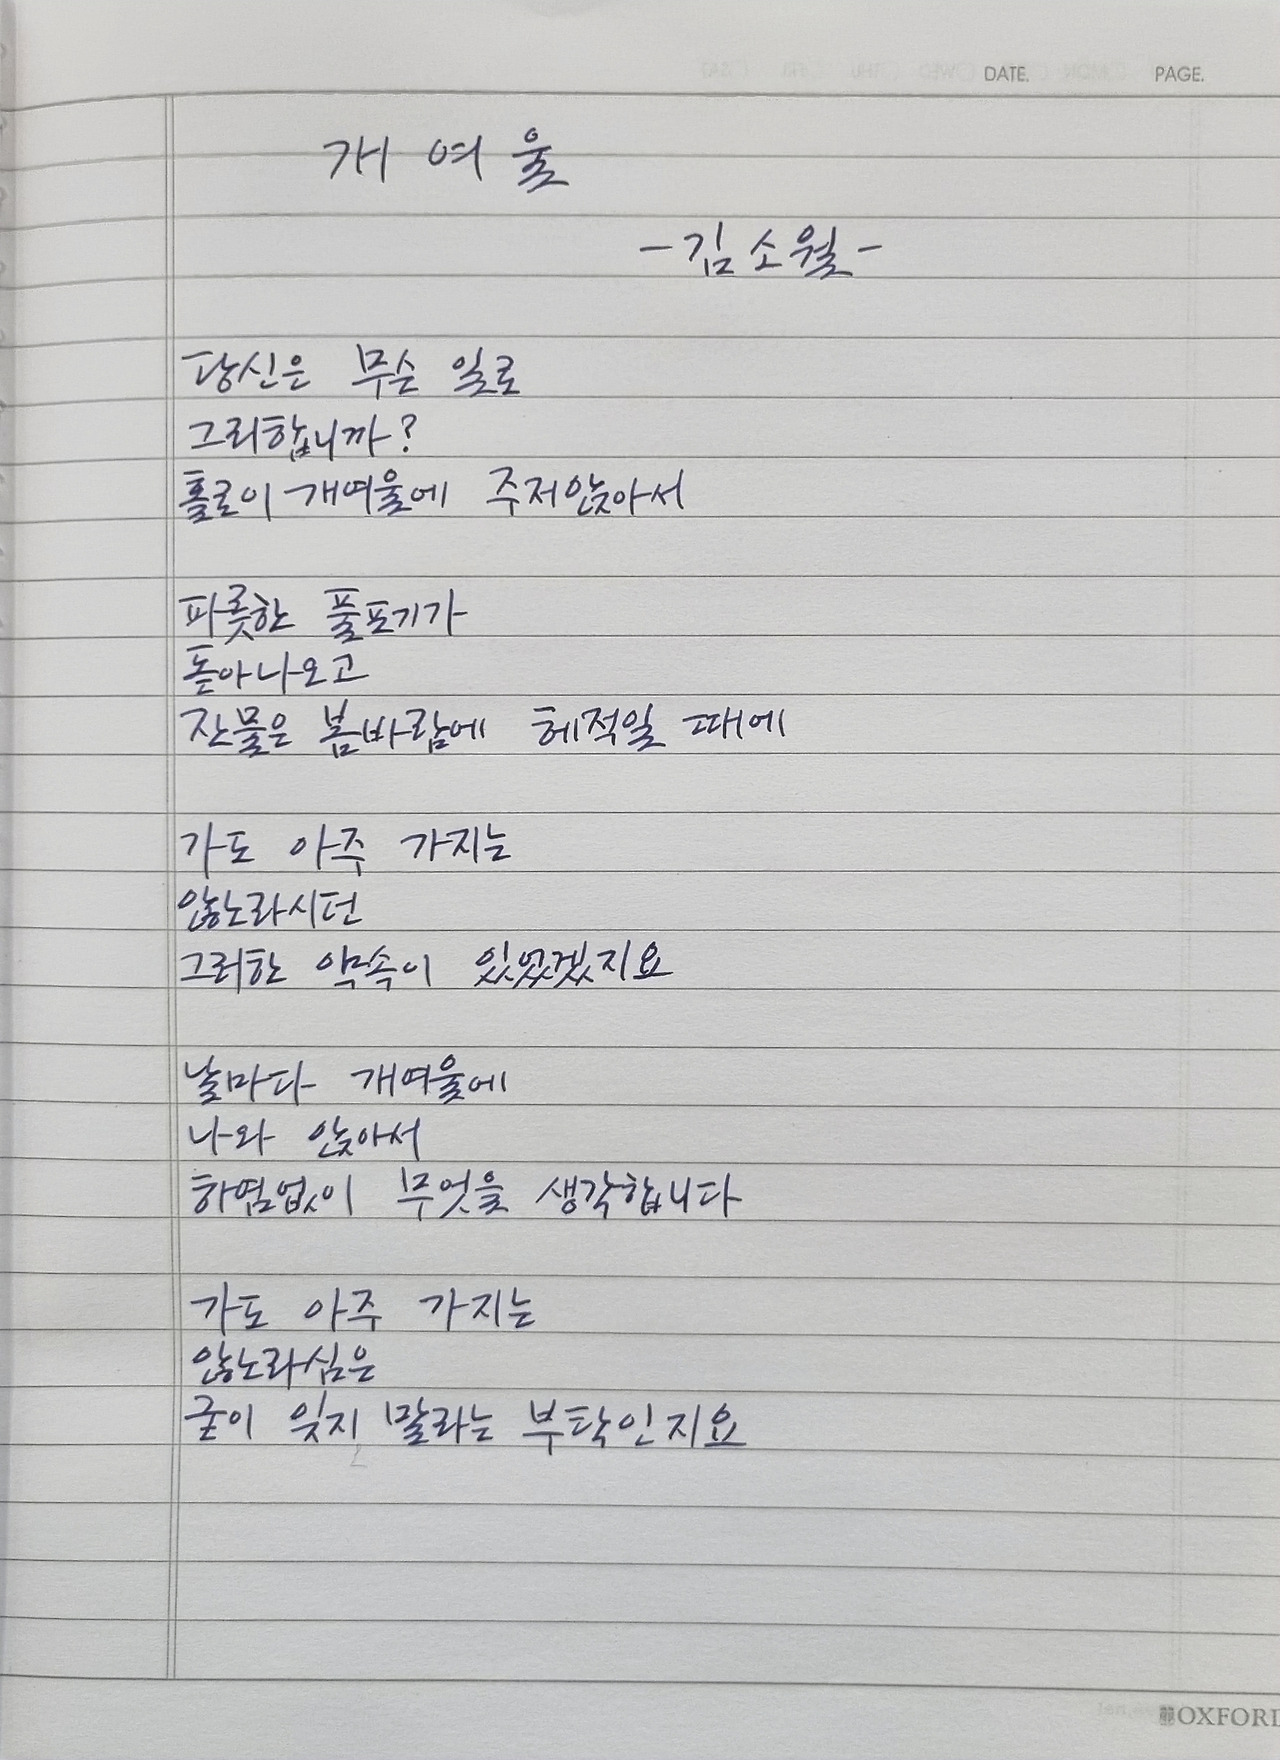 DATE. PAGE.
개여울
-김소월-
당신은 무슨 일로
그리합니까?
홀로이 개여울에 주저앉아서
파릇한 풀포기가
돋아나오고
잔물은 봄바람에 헤적일 때에
가도 아주 가지는
않노라시던
그러한 약속이 있었겠지요
날마다 개여울에
나와 앉아서
하염없이 무엇을 생각합니다
가도 아주 가지는
않노라심은
굳이 잊지 말라는 부탁인지요
OXFORD